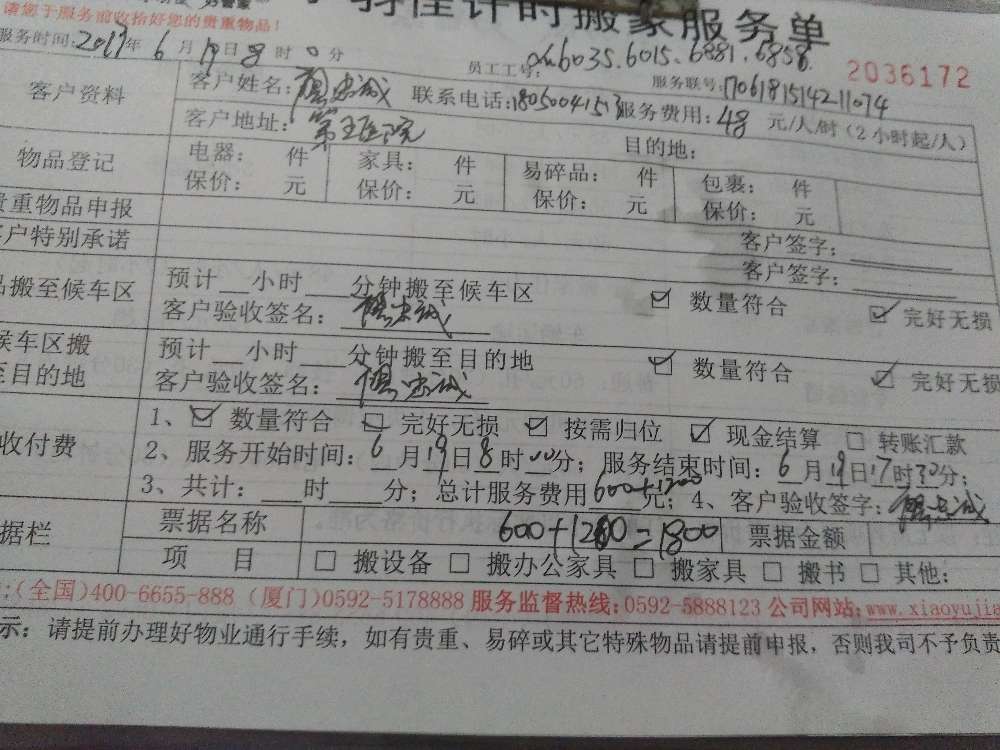 请您于服务前收拾好您的贵重物品!
计时搬家服务单
服务时间: 2017年 6月19日 8时0分
员工工号: 6035.6015.6881.6858
2036172
客户资料 客户姓名: 联系电话: 服务联号: 1706181514211074
服务费用: 48 元/人/时(2小时起/人)
客户地址: 第五医院 目的地:
物品登记 电器: 件 家具: 件 易碎品: 件 包裹: 件
保价: 元 保价: 元 保价: 元 保价: 元
贵重物品申报 客户签字:
客户特别承诺 客户签字:
品搬至候车区 预计__小时____分钟搬至候车区 ☑ 数量符合 ☑ 完好无损
客户验收签名:
候车区搬至目的地 预计__小时____分钟搬至目的地 ☑ 数量符合 ☑ 完好无损
客户验收签名:
收付费 1、☑ 数量符合 ☑ 完好无损 ☑ 按需归位 ☑ 现金结算 □ 转账汇款
2、服务开始时间: 6月19日8时00分; 服务结束时间: 6月19日17时30分;
3、共计: 时 分; 总计服务费用600+1200元; 4、客户验收签字:
据栏 票据名称 600+1200=1800 票据金额
项 目 □ 搬设备 □ 搬办公家具 □ 搬家具 □ 搬书 □ 其他:
(全国)400-6655-888 (厦门)0592-5178888 服务监督热线: 0592-5888123 公司网站: www.xiaoyujia
示: 请提前办理好物业通行手续, 如有贵重、易碎或其它特殊物品请提前申报, 否则我司不予负责